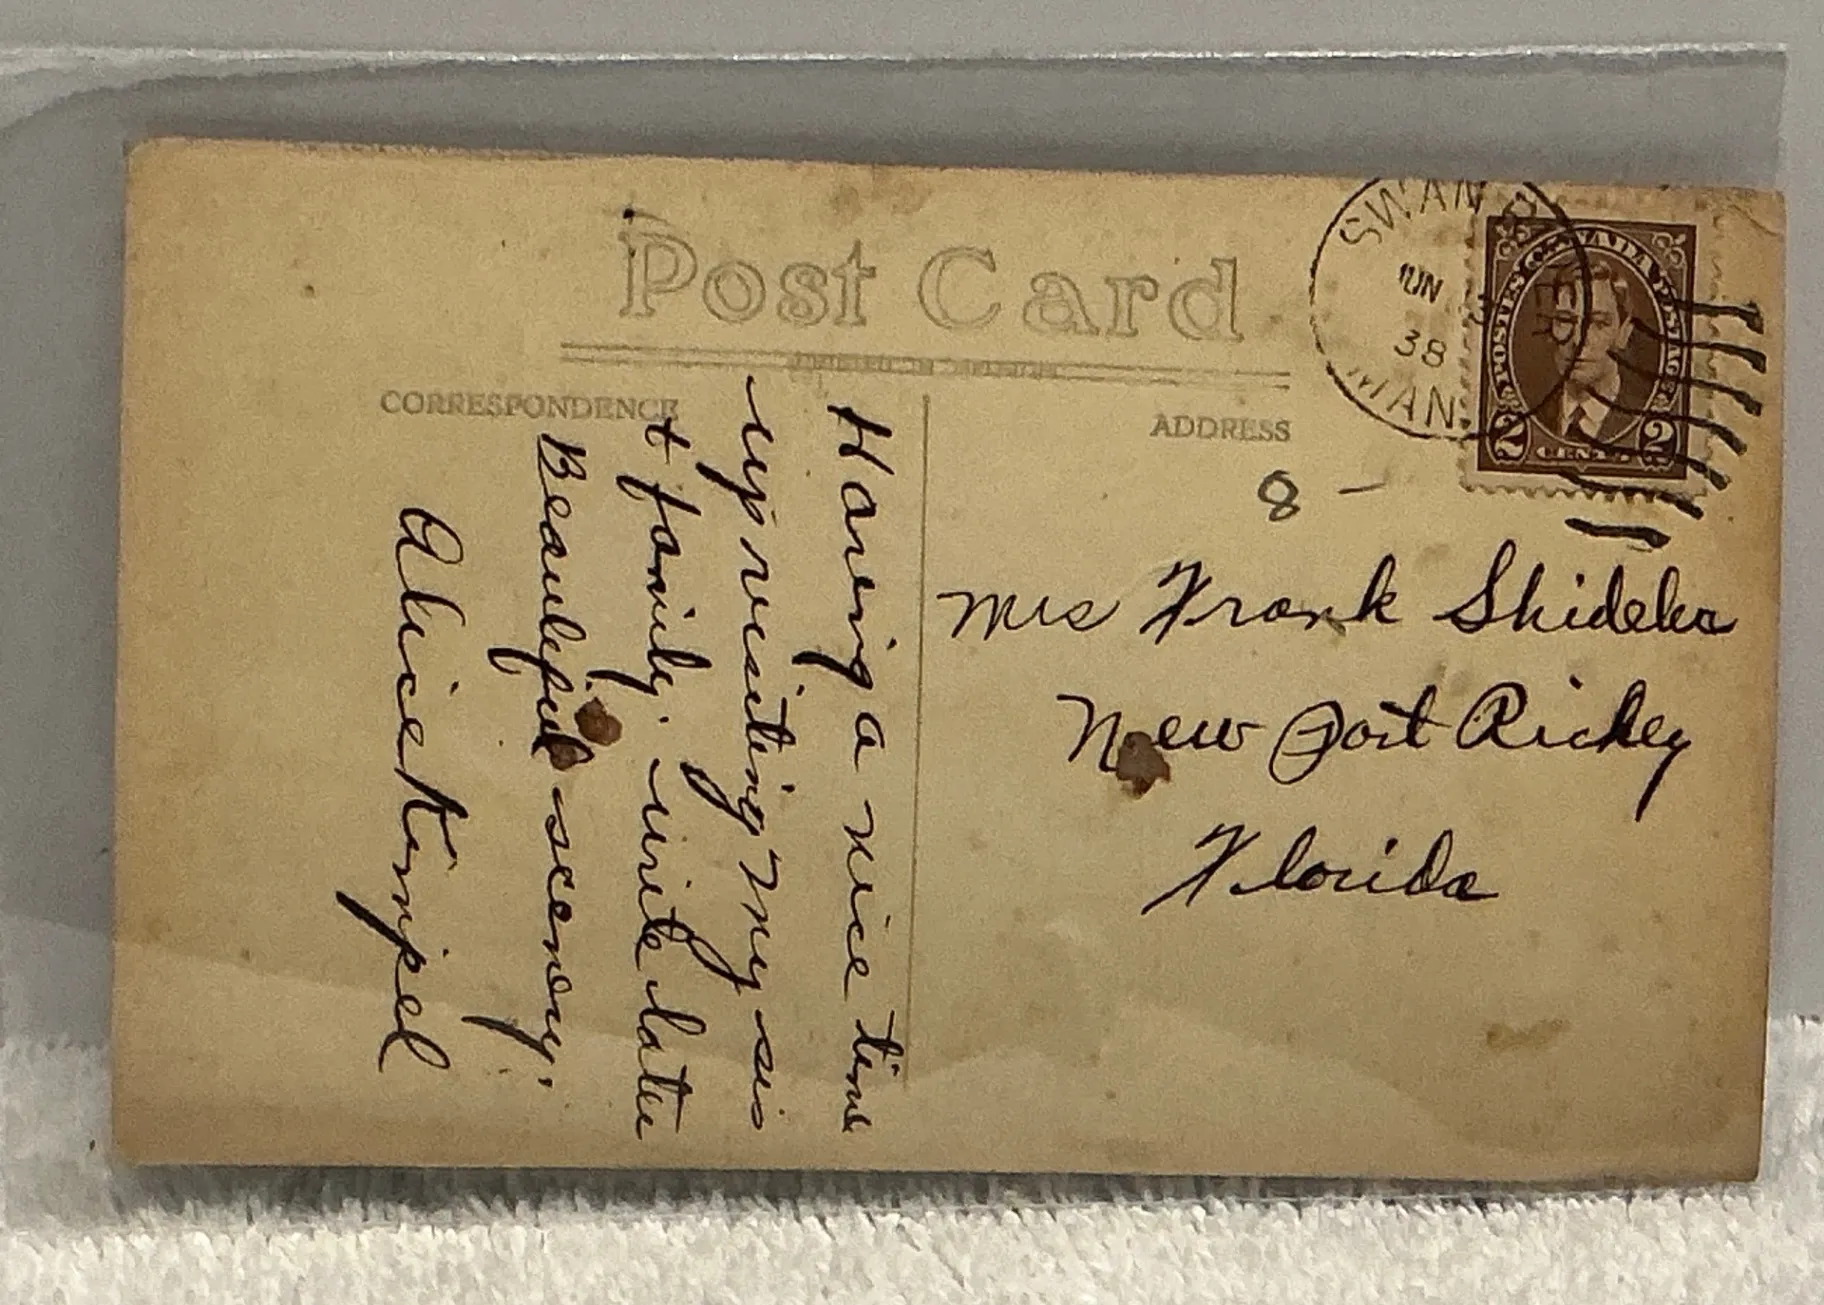 Post Card
CORRESPONDENCE
ADDRESS
SWAN RIVER
JUN
38
MAN.
CANADA
POSTES POSTAGE
2 CENTS 2
8 -
Mrs Frank Shideler
New Port Richey
Florida
Having a nice time
up visiting my sis
+ family. write later
Beautiful scenery.
Alice Kempel